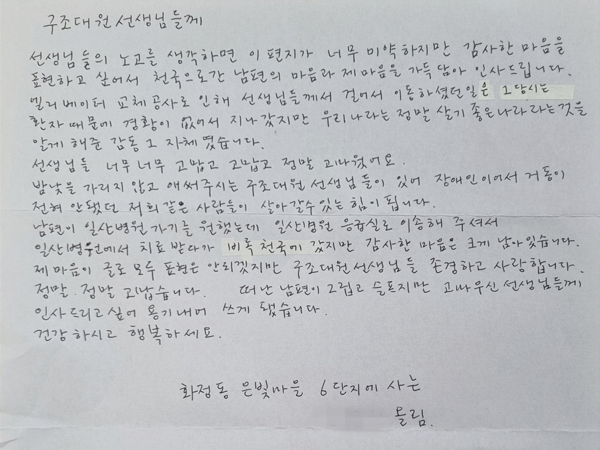 구조대원 선생님들께
선생님들의 노고를 생각하면 이 편지가 너무 미약하지만 감사한 마음을
표현하고 싶어서 천국으로간 남편의 마음과 제마음을 가득담아 인사드립니다.
엘리베이터 교체공사로 인해 선생님들께서 걸어서 이동하셨던일은 그당시는
환자 때문에 경황이 없어서 지나갔지만 우리나라는 정말 살기 좋은나라 라는것을
알게 해준 감동 그 자체 였습니다.
선생님들 너무 너무 고맙고 고맙고 정말 고마웠어요.
밤낮을 가리지 않고 애써주시는 구조대원 선생님들이 있어 장애인이어서 거동이
전혀 안됐던 저희 같은 사람들이 살아갈수 있는 힘이 됩니다.
남편이 일산병원 가기를 원했는데 일산병원 응급실로 이송해 주셔서
일산병원에서 치료 받다가 비록 천국에 갔지만 감사한 마음은 크게 남아있습니다.
제 마음이 글로 모두 표현은 안되겠지만 구조대원선생님들 존경하고 사랑합니다.
정말. 정말 고맙습니다. 떠난 남편이 그립고 슬프지만 고마우신 선생님들께
인사드리고 싶어 용기내어 쓰게 됐습니다.
건강하시고 행복하세요.
화정동 은빛마을 6단지에 사는
올림.